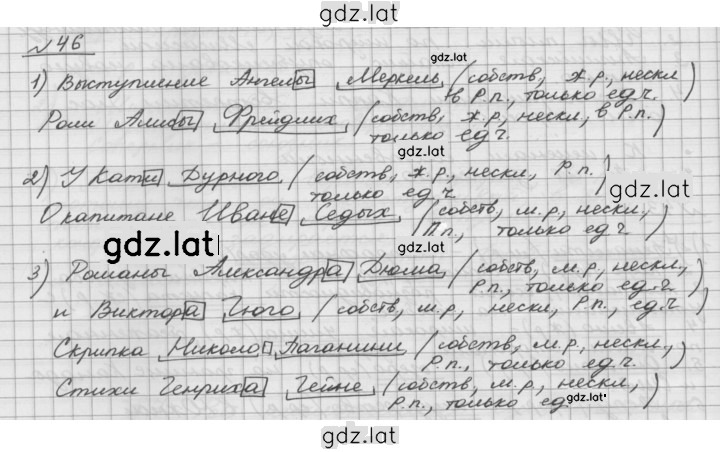 gdz.lat
№46
gdz.lat
1) Выступление Ангелы Меркель (собств, ж.р., нескл
в Р.п., только ед.ч.)
Роли Алисы Фрейдлих (собств, ж.р, нескл, в Р.п.)
только ед.ч.
gdz.lat
2) У Кати Дурного (собств, ж.р., нескл, Р.п.)
только ед.ч
gdz.lat
О капитане Иване Седых (собств, м.р, нескл,
П.п., только ед.ч.)
gdz.lat
gdz.lat
3) Романы Александра Дюма (собств, м.р, нескл,
Р.п., только ед.ч)
и Виктора Гюго (собств, м.р, нескл, Р.п., ед.ч)
Скрипка Николо Паганини (собств, м.р, нескл,
Р.п., только ед.ч.)
gdz.lat
Стихи Генриха Гейне (собств, м.р, нескл,
Р.п., только ед
gdz.lat
gdz.lat